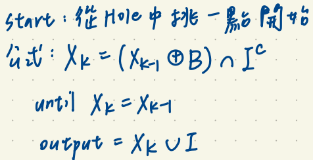 start : 從 Hole 中挑一點開始
公式 : Xₖ = (Xₖ₋₁ ⊕ B) ∩ Iᶜ
until Xₖ = Xₖ₋₁
output = Xₖ ∪ I